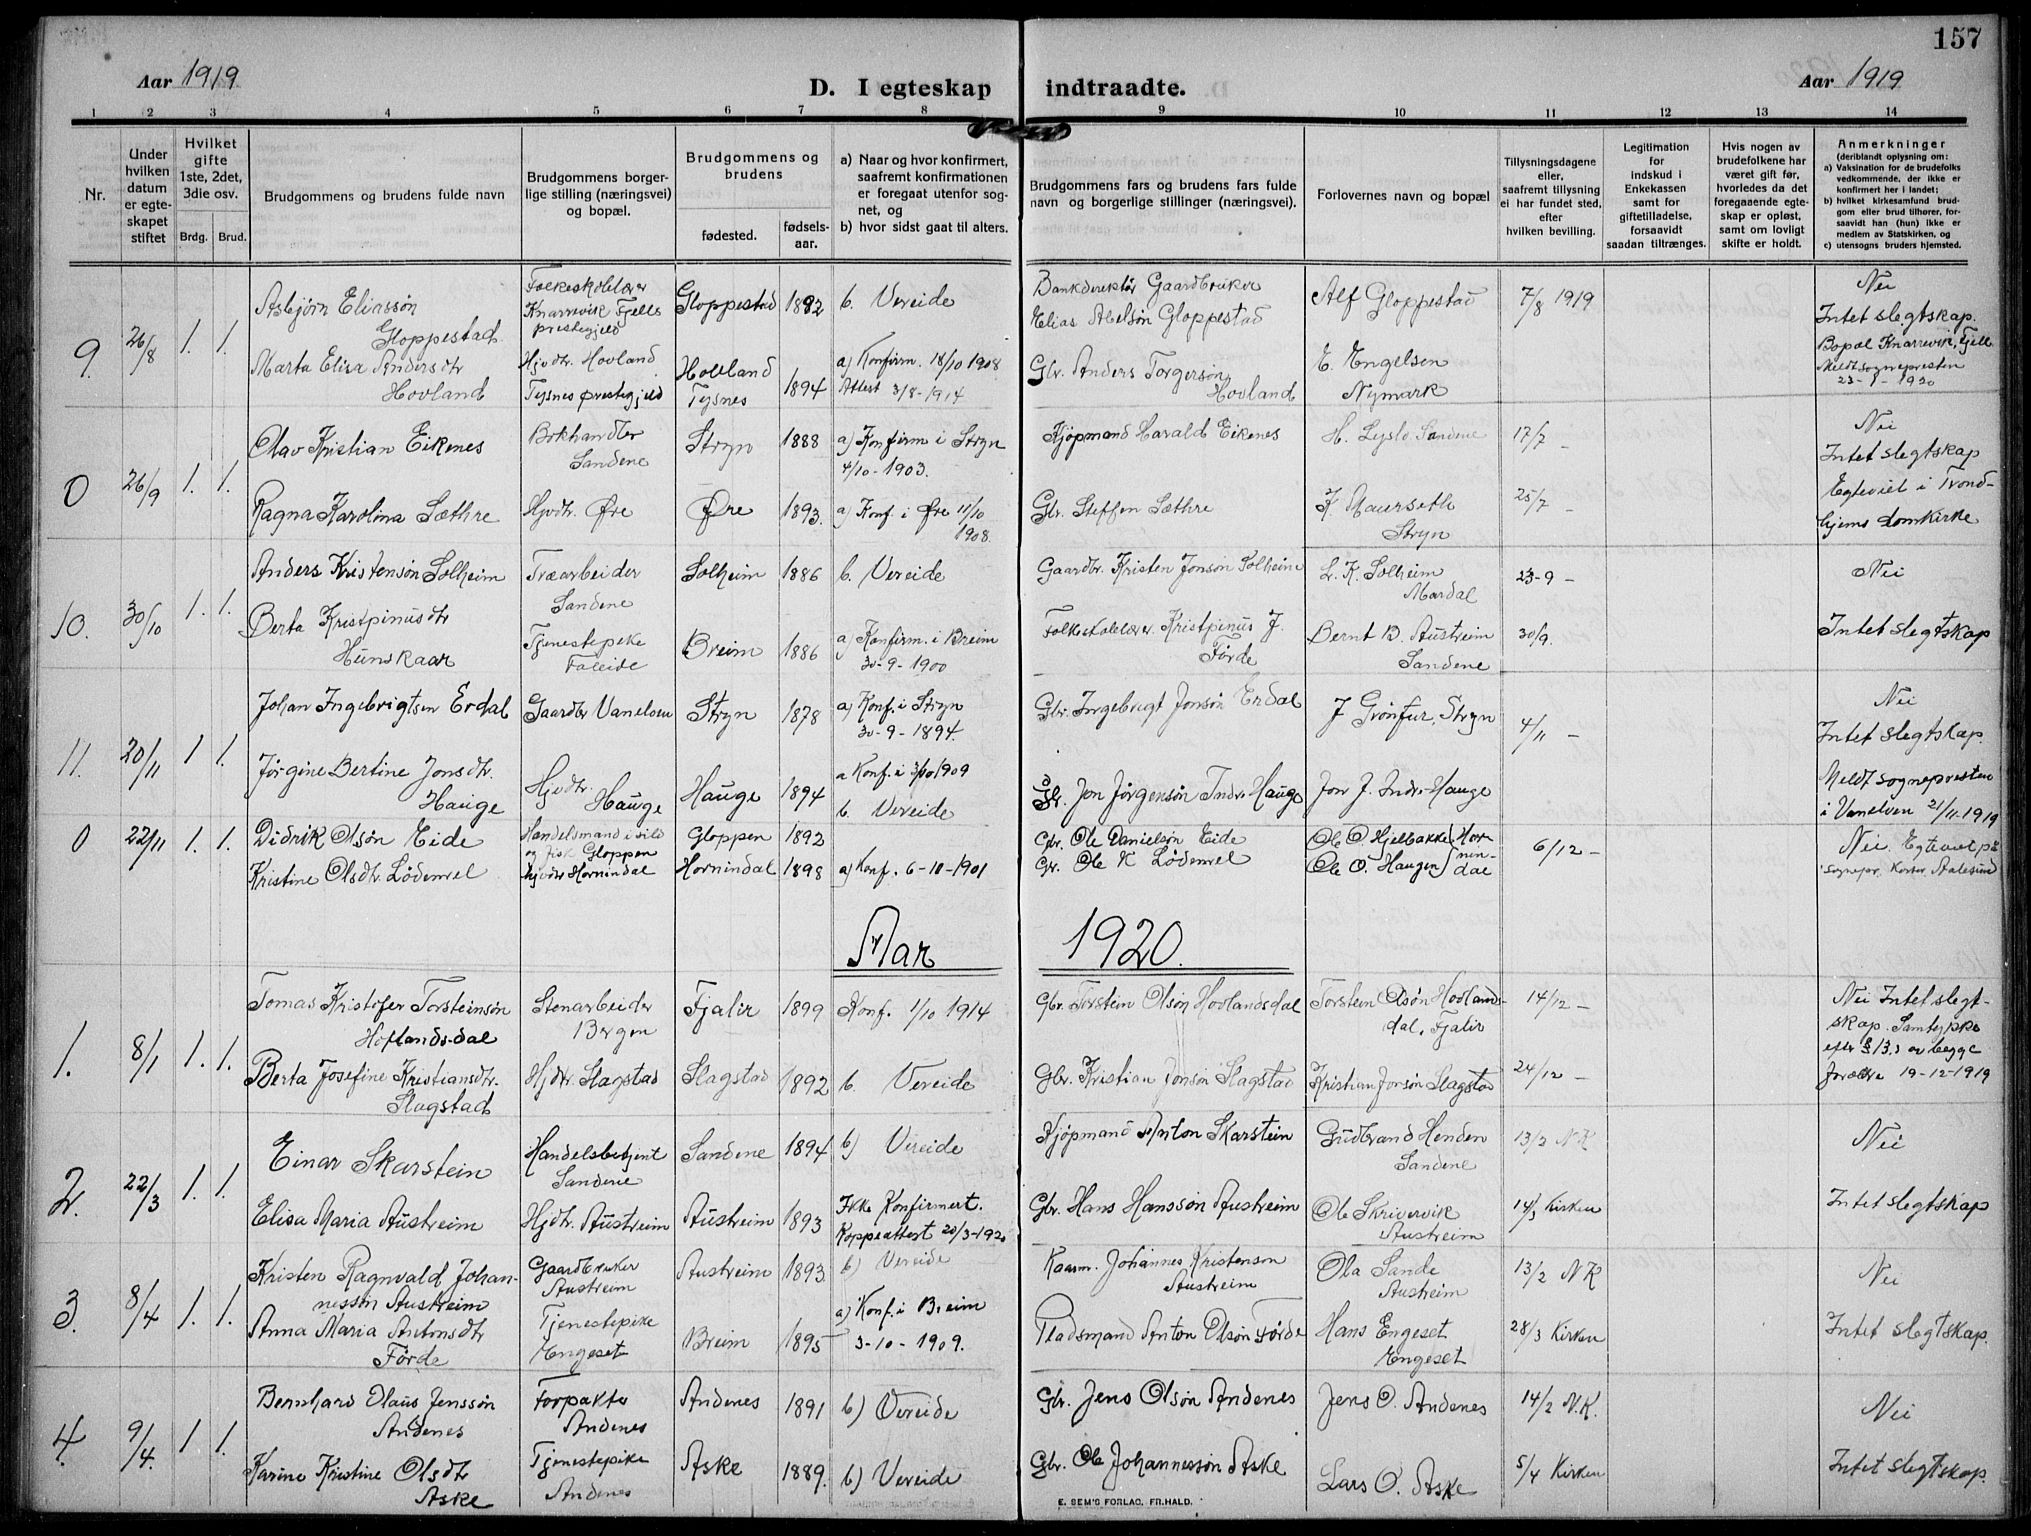 157
Aar 1919
D. I egteskap indtraadte.
Aar 1919
1 2 3 4 5 6 7 8 9 10 11 12 13 14
Nr.
Under
hvilken
datum
er egte-
skapet
stiftet
Hvilket
gifte
1ste, 2det,
3die osv.
Brdg. Brud.
Brudgommens og brudens fulde navn
Brudgommens borger-
lige stilling (næringsvei)
og bopæl.
Brudgommens og
brudens
fødested.
fødsels-
aar.
a) Naar og hvor konfirmert,
saafremt konfirmationen
er foregaat utenfor sog-
net, og
b) hvor sidst gaat til alters.
Brudgommens fars og brudens fars fulde
navn og borgerlige stillinger (næringsvei).
Forlovernes navn og bopæl
Tillysningsdagene
eller,
saafremt tillysning
ei har fundet sted,
efter
hvilken bevilling.
Legitimation
for
indskud i
Enkekassen
samt for
giftetilladelse,
forsaavidt
saadan tiltrænges.
Hvis nogen av
brudefolkene har
været gift før,
hvorledes da det
foregaaende egte-
skap er opløst,
samt om lovligt
skifte er holdt.
Anmerkninger
(deriblandt oplysning om:
a) Vaksination for de brudefolks
vedkommende, der ikke er
konfirmert her i landet;
b) hvilket kirkesamfund brud-
gom eller brud tilhører, for-
saavidt han (hun) ikke er
medlem av Statskirken, og
c) utensogns bruders hjemsted.
9. 26/8 1. 1.
Asbjørn Eliassøn
Gloppestad
Folkeskolelærer
Knarrevik Fjells
prestegjeld
Gloppestad 1892 b. Vereide
Bankdirektør Gaardbruker
Elias Abelsøn Gloppestad
Alf Gloppestad
7/8 1919
Nei
Intet slegtskap.
Bopæl Knarrevik, Fjell
Meldt sognepresten
Marta Elisa Andersdtr
Hovland
Hjvdtr. Hovland
Tysnes prestegjeld
Hovland
Tysnes
1894
a) Konfirm. 18/10 1908
Attest 3/8-1914
Gbr. Anders Torgersøn
Hovland
E. Engelsen
Nymark
0 26/9 1. 1.
Olav Kristian Eikenes
Bokhandler
Sandene
Stryn 1888
a) Konfirm i Stryn
4/10-1903.
Kjøpmand Harald Eikenes
H. Lyslo Sandene
17/7 –
Nei
Intet slegtskap
Egteviet i Trond-
hjems domkirke
Ragna Karolina Sæthre
Hjvdtr. Øre
Øre 1893.
a) Konf. i Øre 11/10
1908.
Gbr. Steffen Sæthre
K. Maurseth
Stryn
25/7 –
10. 30/10 1. 1.
Anders Kristensøn Solheim
Træarbeider
Sandene
Solheim 1886 b. Vereide
Gaardbr. Kristen Jonsøn Solheim
L. K. Solheim
Mardal
23-9 –
Nei
Intet slegtskap
Berta Kristpinusdtr
Hunskaar
Tjenestepike
Faleide
Breim 1886
a) Konfirm. i Breim
30-9-1900
Folkeskolelærer. Kristpinus J.
Førde
Bernt B. Austreim
Sandene
30/9.
11. 20/11 1 1.
Johan Ingebrigtsen Erdal
Gaardbr Vanelven
Stryn 1878
a) Konf. i Stryn
30-9-1894.
Gbr. Ingebrigt Jonsøn Erdal
J Grønfur, Stryn
4/11 –
Nei
Intet slegtskap.
Meldt sognepresten
i Vanelven 21/11-1919
Jørgine Bertine Jonsdtr.
Hauge
Hjvdtr.
Hauge
Hauge 1894
a Konf. i 3/10 1909
b. Vereide
Gbr. Jon Jørgensøn Indr. Hauge
Jon J. Indre-Hauge
0 22/11 1. 1.
Didrik Olsøn Eide
Handelsmand i sild
og fisk Gloppen
Gloppen 1892
Gbr. Ole Danielsøn Eide
Ole O. Hjelbakke Hor-
nin-
dal
6/12 –
Nei. Egteviet på
sognepr. kontor Aalesund
Kristine Olsdtr. Lødemel
hjvdtr Hornindal
Hornindal 1898
a) Konf. 6-10-1901
Gr. Ole K Lødemel
Ole O. Haugen
Aar 1920.
1. 8/1 1. 1.
Tomas Kristofer Torsteinsøn
Hoflandsdal
Stenarbeider
Bergen
Fjalir 1899 Konf. 1/10 1914
Gbr. Torstein Olsøn Hovlandsdal
Torstein Olsøn Hovlands-
dal, Fjalir
14/12 –
Nei Intet slegt-
skap. Samtykke
efter § 13,3 av begge
forældre 19-12-1919
Berta Josefine Kristiansdtr.
Slagstad
Hjdtr. Slagstad
Slagstad 1892 b. Vereide
Gbr. Kristian Jonsøn Slagstad
Kristian Jonsøn Slagstad
24/12 –
2. 22/3 1. 1.
Einar Skarstein
Handelsbetjent
Sandene
Sandene 1894 b) Vereide
Kjøpmand Anton Skarstein
Gudbrand Henden
Sandene
13/3 N K
Nei
Intet slegtskap
Elisa Maria Austreim
Hjdtr. Austreim
Austreim 1893
Ikke Konfirmert.
Koppeattest 20/3-1920
Gbr. Hans Hanssøn Austreim
Ole Skrivervik
Austreim
14/3 Kirken
3. 8/4 1. 1.
Kristen Ragnvald Johan-
nessøn Austreim
Gaardbruker
Austreim
Austreim 1893 b) Vereide
Kaarm. Johannes Kristensøn
Austreim
Ola Sande
Austreim
13/2 N K
Nei
Intet slegtskap.
Anna Maria Antonsdtr
Førde
Tjenestepike
Engeset
Breim 1895
a) Konf. i Breim
3-10-1909.
Pladsmand Anton Olsøn Førde
Hans Engeset
Engeset
28/3 Kirken
4. 9/4. 1 1.
Bernhard Olaus Jenssøn
Andenes
Forpakter
Andenes
Andenes 1891 b) Vereide
Gbr. Jens Olsøn Andenes
Jens O. Andenes
14/2 N.K.
Nei
Intet slegtskap.
Karine Kristine Olsdtr
Aske
Tjenestepike
Andenes
Aske 1889. b) Vereide
Gbr. Ole Johannessøn Aske
Lars O. Aske
5/4 Kirken
E. SEM'S FORLAG, FR.HALD.